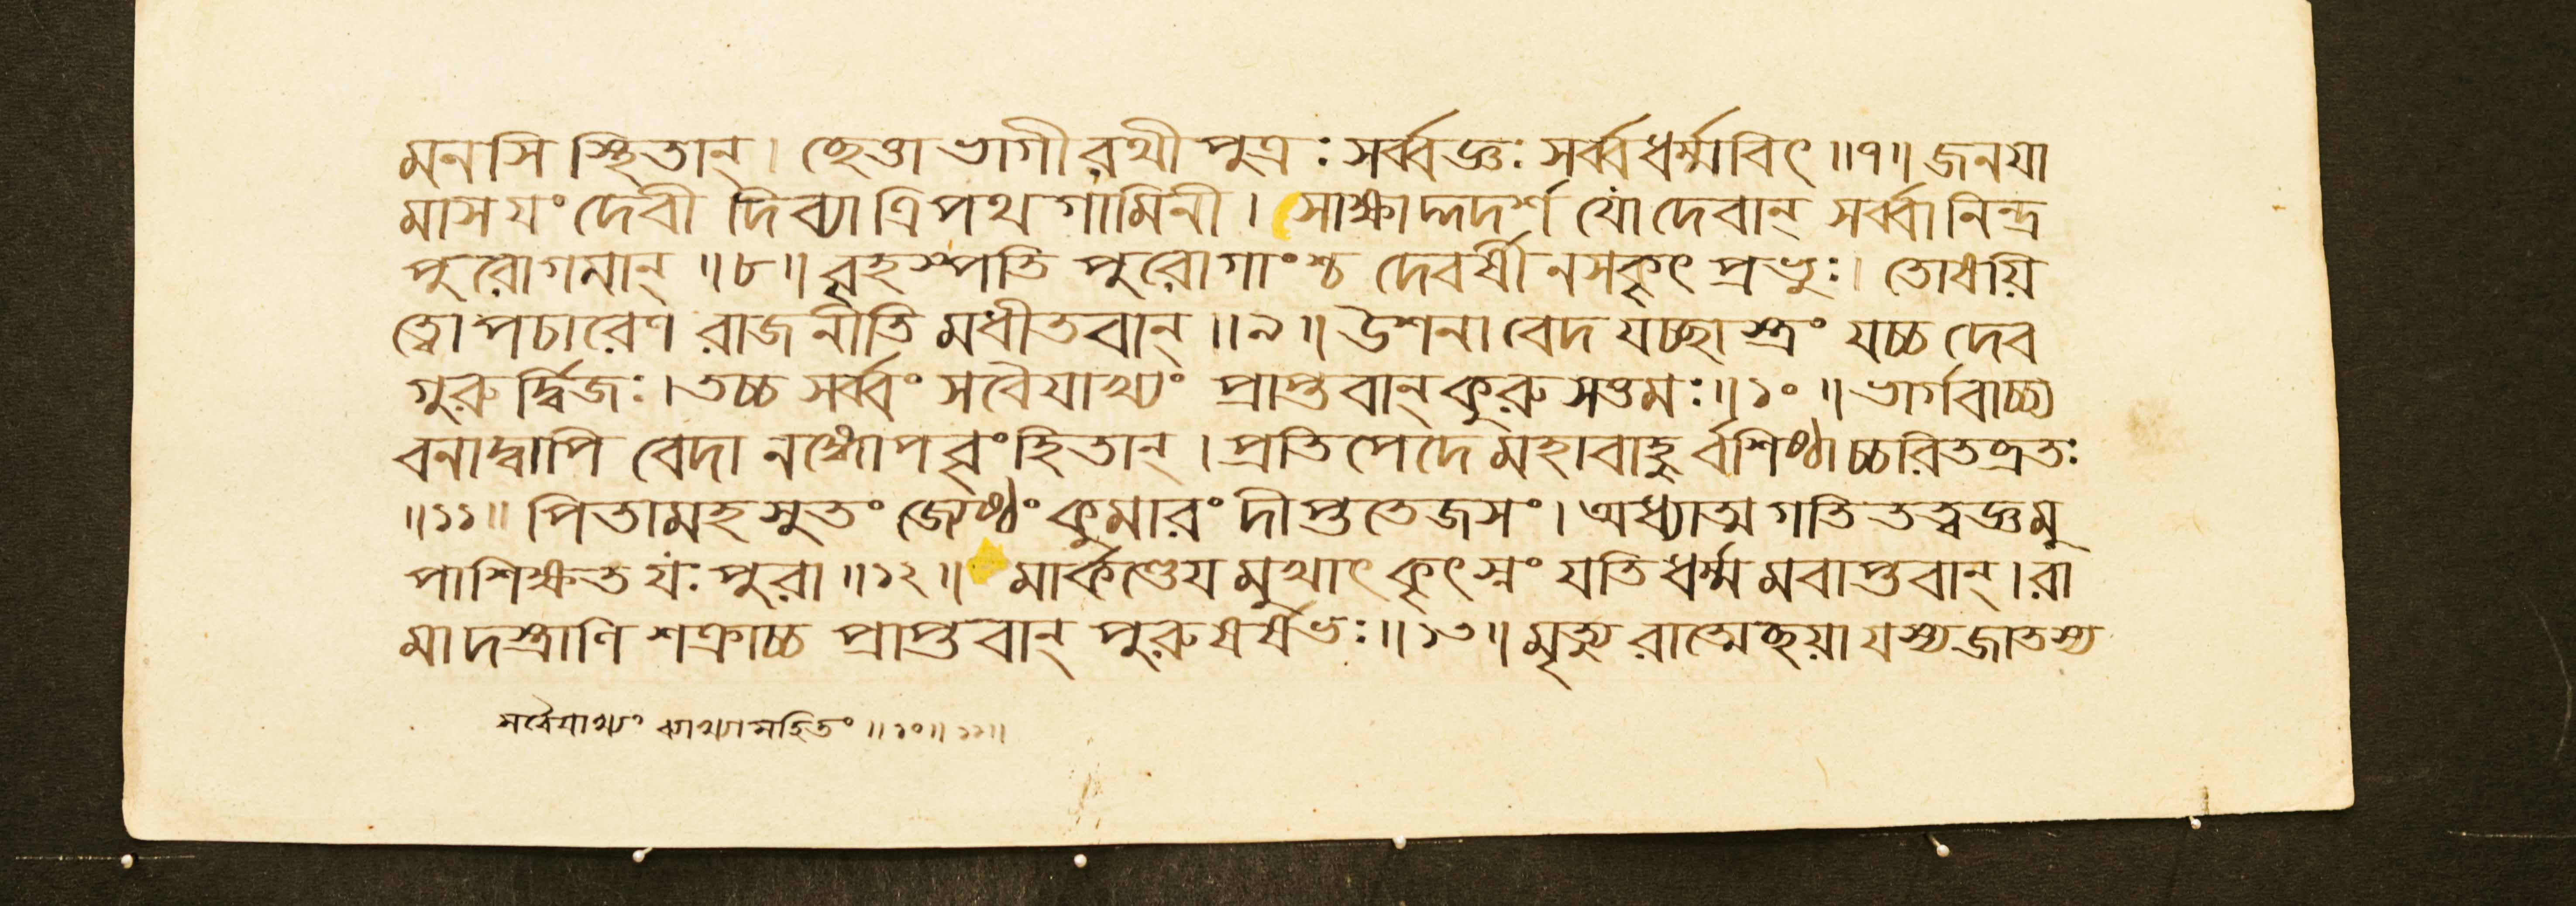 মনসি স্থিতান্। ছেত্তা ভাগীরথী পুত্রঃ সর্ব্বজ্ঞঃ সর্ব্বধর্ম্মবিৎ॥৭॥ জনযা
মাস যং দেবী দিব্যা ত্রিপথগামিনী। সাক্ষাদ্দদর্শ যো দেবান্ সর্ব্বানিন্দ্র
পুরোগমান্॥৮॥ বৃহস্পতি পুরোগাংশ্চ দেবর্ষীনসকৃৎ প্রভুঃ। তোষয়ি
ত্বোপচারেণ রাজনীতিমধীতবান্॥৯॥ উশনা বেদ যচ্ছাস্ত্রং যচ্চ দেব
গুরুর্দ্বিজঃ। তচ্চ সর্ব্বং সবৈযাখ্যং প্রাপ্তবান্ কুরুসত্তমঃ॥১০॥ ভার্গবাচ্চ্য
বনাদ্বাপি বেদানঙ্গোপবৃংহিতান্। প্রতিপেদে মহাবাহুর্বশিষ্ঠাচ্চরিতব্রতঃ
॥১১॥ পিতামহসুতং জ্যেষ্ঠং কুমারং দীপ্ততেজসং। অধ্যাত্মগতিতত্ত্বজ্ঞমু
পাশিক্ষত যঃ পুরা॥১২॥ মার্কণ্ডেযমুখাৎ কৃৎস্নং যতিধর্ম্মমবাপ্তবান্। রা
মাদস্ত্রাণি শক্রাচ্চ প্রাপ্তবান্ পুরুষর্ষভঃ॥১৩॥ মৃত্যুরাত্মেচ্ছয়া যস্য জাতস্য
সবৈযাখ্যং ব্যাখ্যাসহিতং॥১০॥১১॥